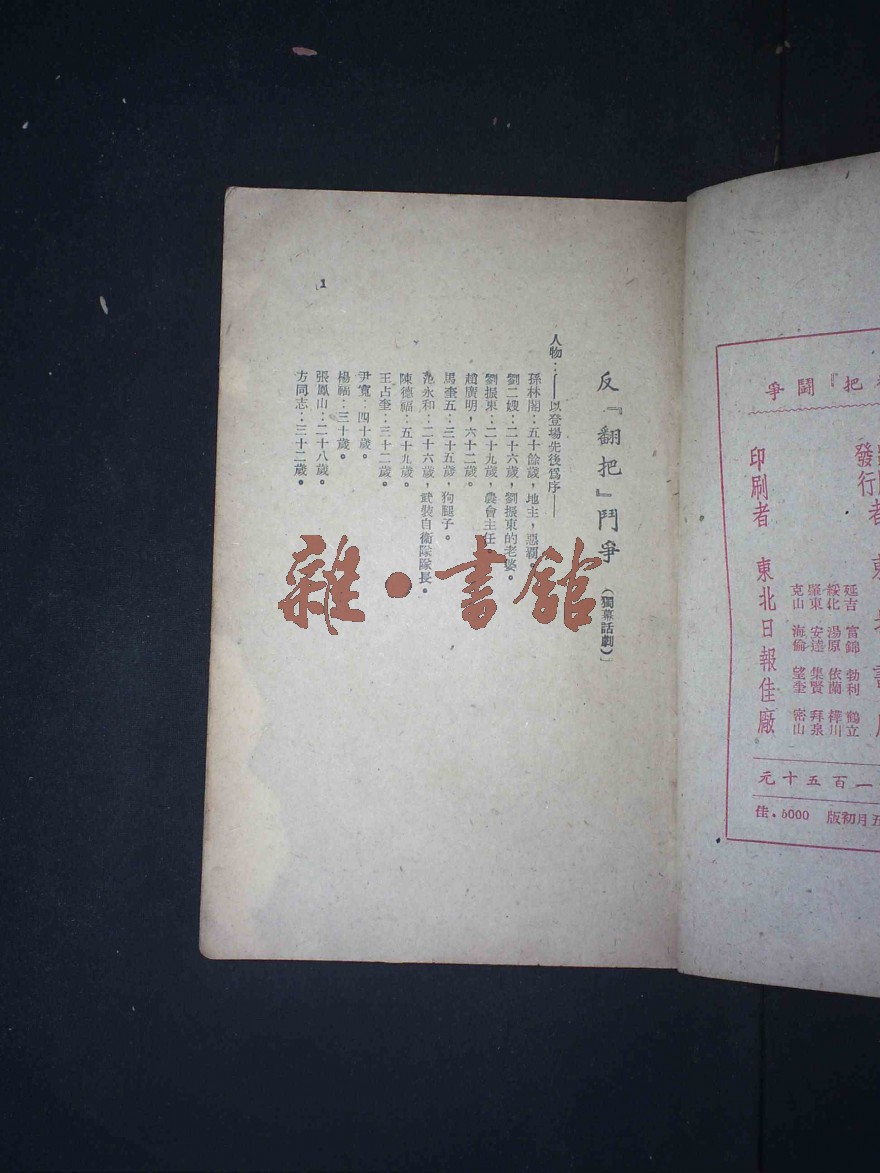 爭鬪『把
發行者 東北書店
延吉 富錦 勃利 鶴立
綏化 湯原 依蘭 樺川
肇東 安達 集賢 拜泉
克山 海倫 望奎 密山
印刷者 東北日報佳廠
元十五百一
五月初版 5000.佳
反『翻把』鬥爭 (獨幕話劇)
人物：——以登場先後爲序——
孫林閣：五十餘歲，地主，惡覇。
劉二嫂：二十六歲，劉振東的老婆。
劉振東：二十九歲，農會主任
趙廣明，六十二歲。
馬奎五：三十五歲，狗腿子。
范永和：二十六歲，武裝自衛隊隊長。
陳德福：五十九歲。
王占奎：三十二歲。
尹寬：四十歲。
楊福：三十歲。
張鳳山：二十八歲。
方同志：三十二歲。
1
雜·書舘